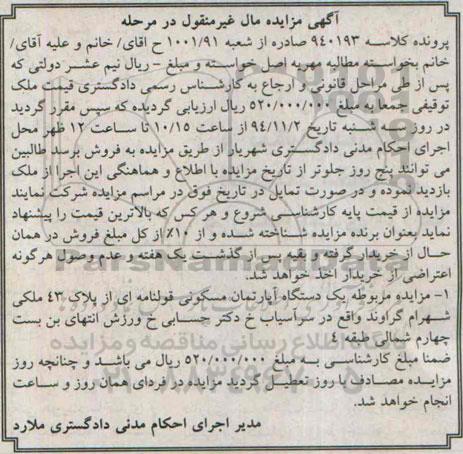 آگهی مزایده مال غیرمنقول در مرحله
پرونده کلاسه ۹۴۰۱۹۳ صادره از شعبه ۱۰۰۱/۹۱ ح اقای/ خانم و علیه آقای/
خانم بخواسته مطالبه مهریه اصل خواسته و مبلغ - ریال نیم عشر دولتی که
پس از طی مراحل قانونی و ارجاع به کارشناس رسمی دادگستری قیمت ملک
توقیفی جمعا به مبلغ ۵۲۰/۰۰۰/۰۰۰ ریال ارزیابی گردیده که سپس مقرر گردید
در روز سه شنبه تاریخ ۹۴/۱۱/۲ از ساعت ۱۰/۱۵ تا ساعت ۱۲ ظهر محل
اجرای احکام مدنی دادگستری شهریار از طریق مزایده به فروش برسد طالبین
می توانند پنج روز جلوتر از تاریخ مزایده با اطلاع و هماهنگی این اجرا از ملک
بازدید نموده و در صورت تمایل در تاریخ فوق در مراسم مزایده شرکت نمایند
مزایده از قیمت پایه کارشناسی شروع و هر کس که بالاترین قیمت را پیشنهاد
نماید بعنوان برنده مزایده شناخته شده و از ۱۰٪ از کل مبلغ فروش در همان
حال از خریدار گرفته و بقیه پس از گذشت یک هفته و عدم وصول هرگونه
اعتراضی از خریدار اخذ خواهد شد.
۱- مزایده مربوطه یک دستگاه آپارتمان مسکونی قولنامه ای از پلاک ۴۳ ملکی
شهرام گراوند واقع در سرآسیاب خ دکتر حسابی خ ورزش انتهای بن بست
چهارم شمالی طبقه ۴
ضمنا مبلغ کارشناسی به مبلغ ۵۲۰/۰۰۰/۰۰۰ ریال می باشد و چنانچه روز
مزایده مصادف با روز تعطیل گردید مزایده در فردای همان روز و ساعت
انجام خواهد شد.
مدیر اجرای احکام مدنی دادگستری ملارد
ParsNamadData
پایگاه اطلاع رسانی مناقصه و مزایده
۰۲۱-۸۸۳۴۹۶۷۰-۵